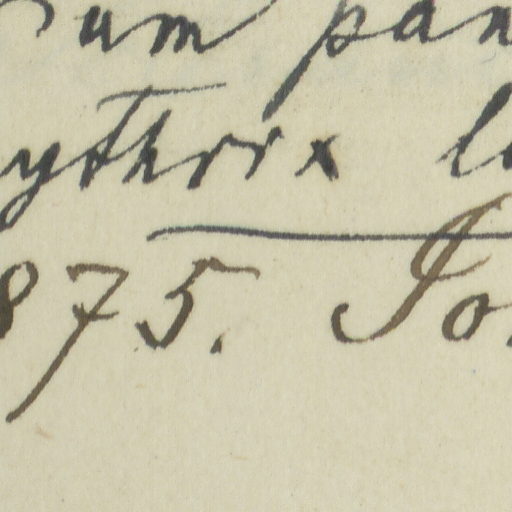 um pan
ythrix l
875. Jo